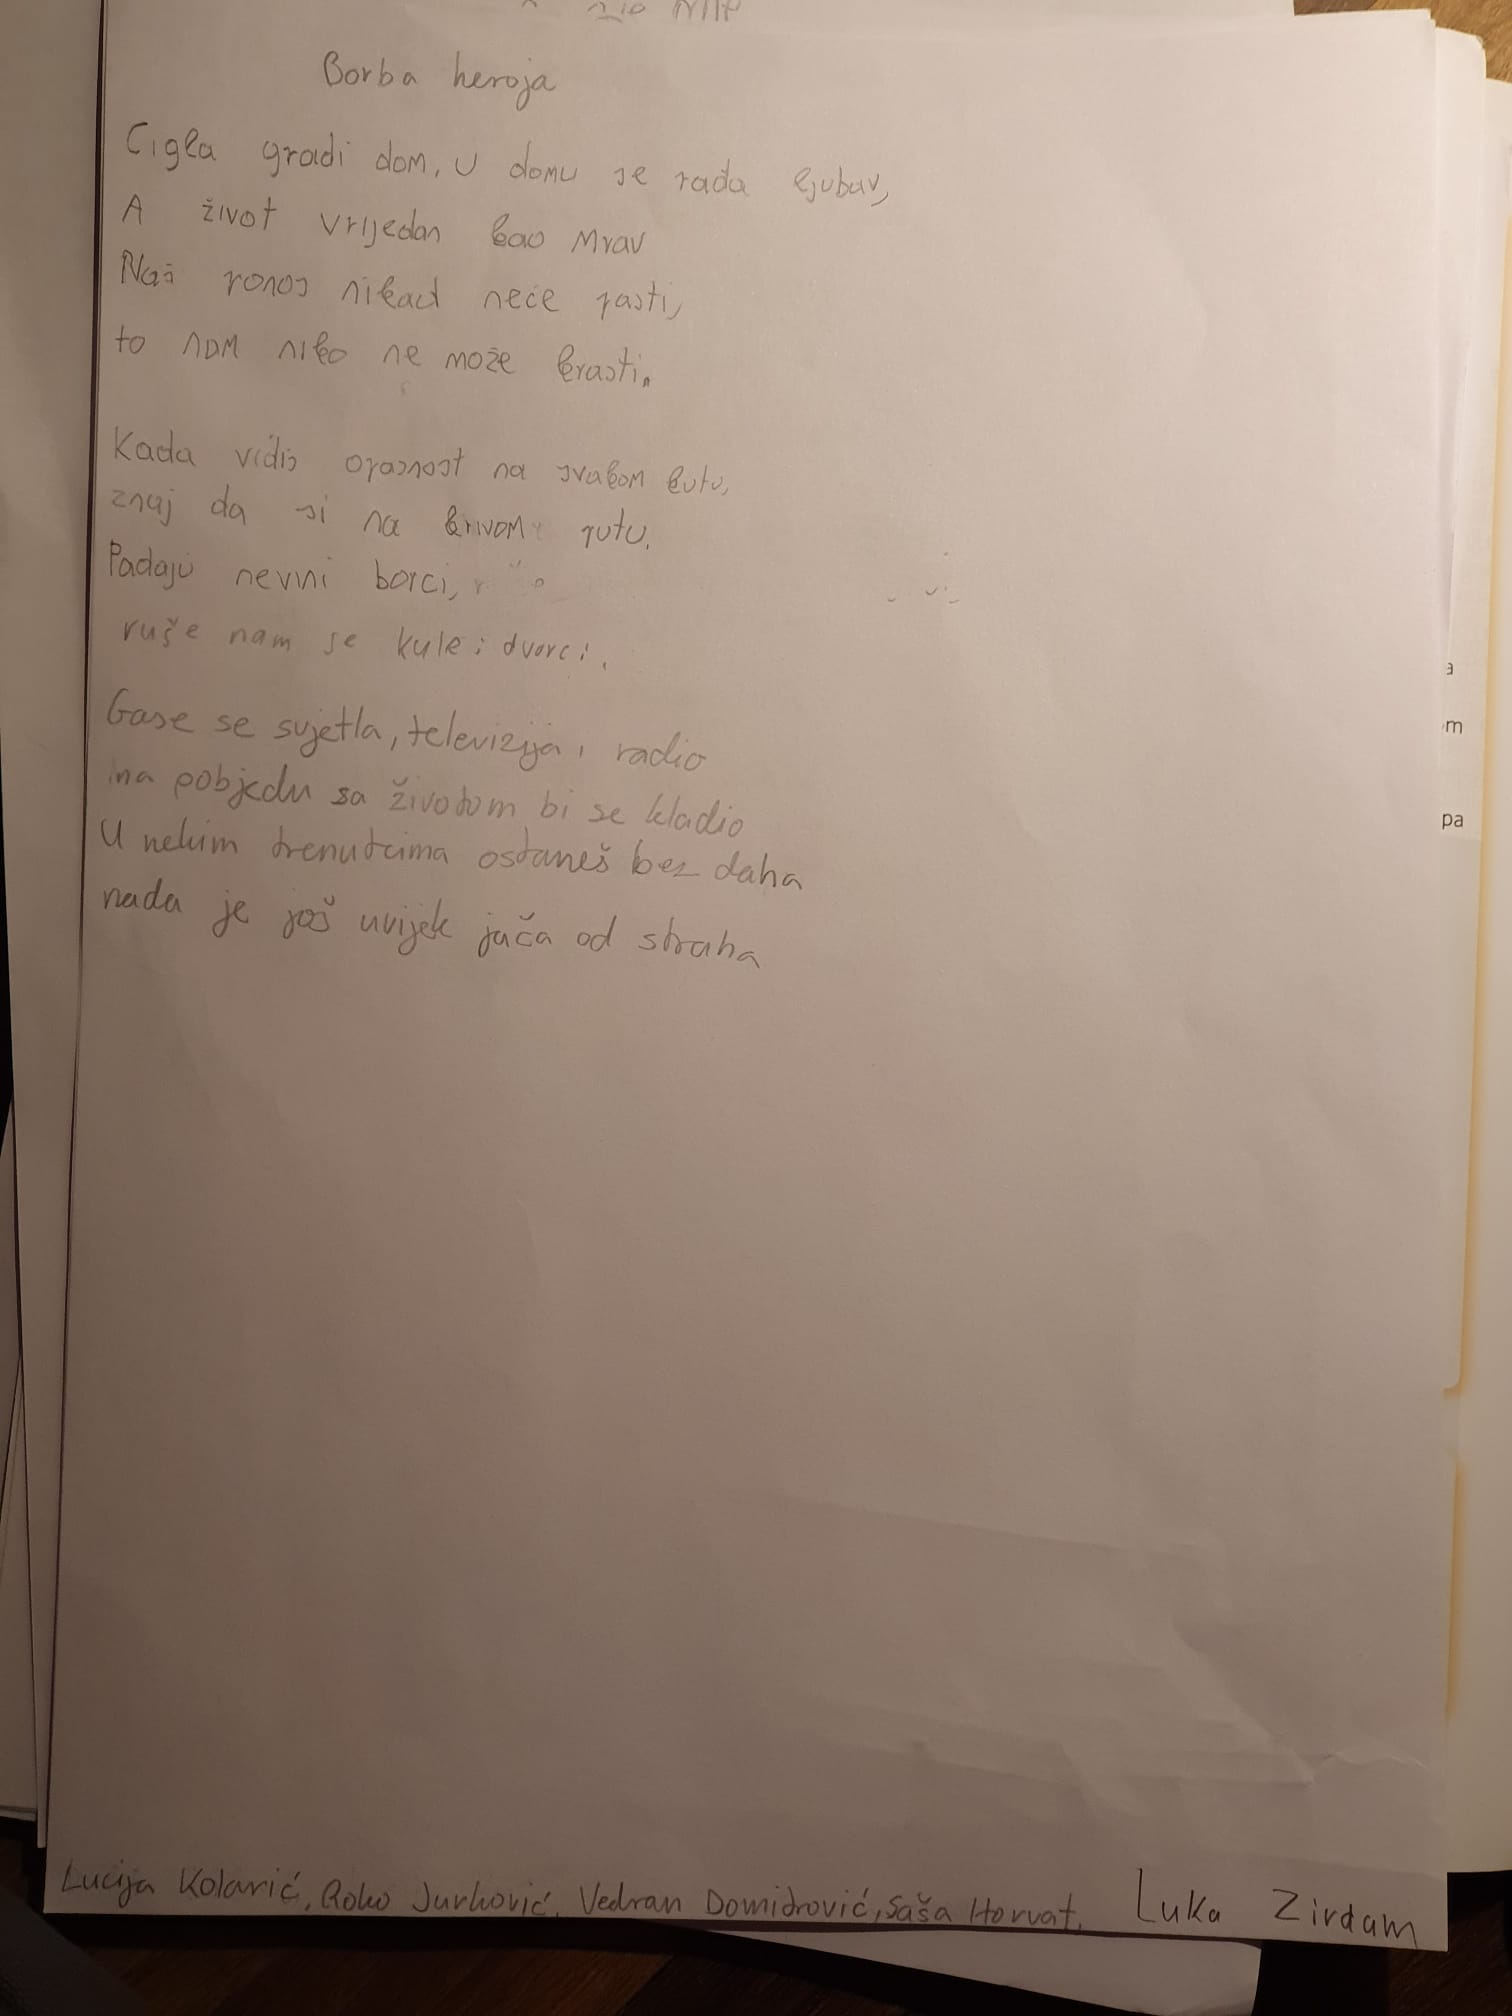 Borba heroja
Cigla gradi dom, u domu se rađa ljubav,
A život vrijedan kao mrav
Naš ponos nikad neće pasti,
to nam niko ne može krasti.
Kada vidiš opasnost na svakom kutu,
znaj da si na krivom putu.
Padaju nevini borci,
ruše nam se kule i dvorci.
Gase se svjetla, televizija i radio
na pobjedu sa životom bi se kladio
U nekim trenutcima ostaneš bez daha
nada je još uvijek jača od straha
a
m
pa
Lucija Kolarić, Roko Jurković, Vedran Domitrović, Saša Horvat, Luka Zirdam